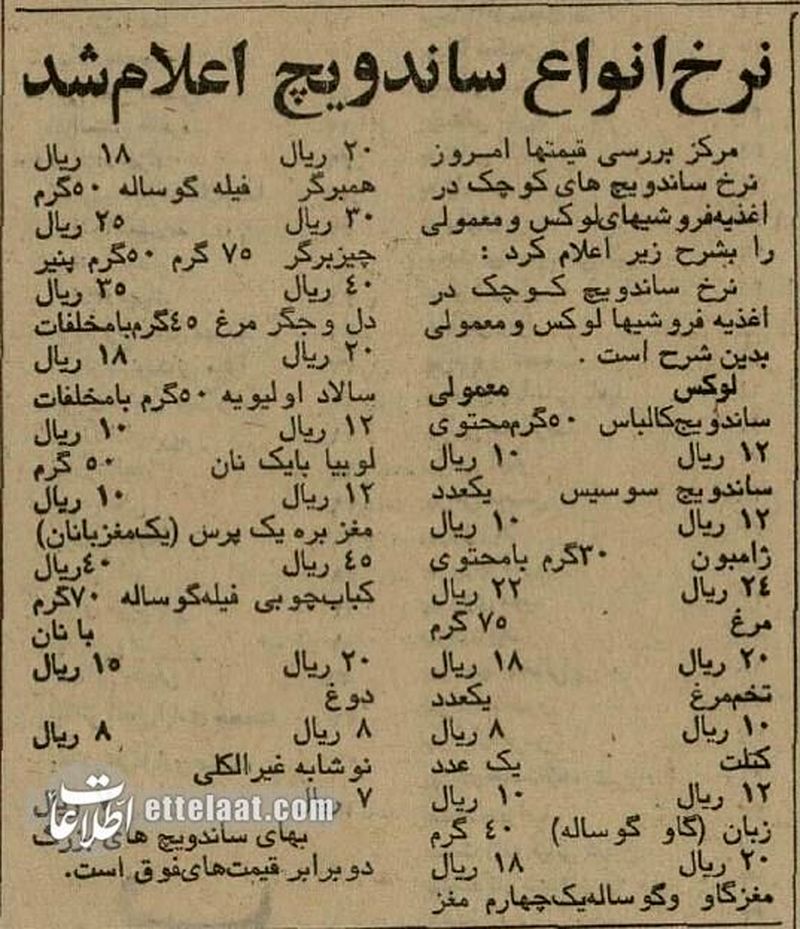 نرخ انواع ساندویچ اعلام شد
مرکز بررسی قیمتها امروز
نرخ ساندویچ های کوچک در
اغذیه‌فروشیهای‌لوکس و معمولی
را بشرح زیر اعلام کرد :
نرخ ساندویچ کوچک در
اغذیه فروشیها لوکس و معمولی
بدین شرح است .
لوکس معمولی
ساندویچ‌کالباس ۵۰گرم‌محتوی
۱۲ ریال ۱۰ ریال
ساندویچ سوسیس یکعدد
۱۲ ریال ۱۰ ریال
ژامبون ۳۰گرم بامحتوی
۲۴ ریال ۲۲ ریال
مرغ ۷۵ گرم
۲۰ ریال ۱۸ ریال
تخم‌مرغ یکعدد
۱۰ ریال ۸ ریال
کتلت یک عدد
۱۲ ریال ۱۰ ریال
زبان (گاو گوساله) ۴۰ گرم
۲۰ ریال ۱۸ ریال
مغزگاو وگوساله‌یک‌چهارم مغز
۲۰ ریال ۱۸ ریال
همبرگر فیله گوساله ۵۰گرم
۳۰ ریال ۲۵ ریال
چیزبرگر ۷۵ گرم ۵۰گرم پنیر
۴۰ ریال ۳۵ ریال
دل و جگر مرغ ۴۵گرم‌بامخلفات
۲۰ ریال ۱۸ ریال
سالاد اولیویه ۵۰گرم بامخلفات
۱۲ ریال ۱۰ ریال
لوبیا بایک نان ۵۰ گرم
۱۲ ریال ۱۰ ریال
مغز بره یک پرس (یک‌مغزبانان)
۴۵ ریال ۴۰ریال
کباب‌چوبی فیله‌گوساله ۷۰گرم
با نان
۲۰ ریال ۱۵ ریال
دوغ
۸ ریال ۸ ریال
نوشابه غیرالکلی
۷ ریال
بهای ساندویچ های
دوبرابر قیمت‌های‌فوق است.
اطلاعات ettelaat.com